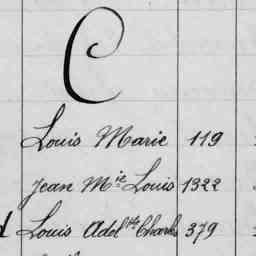 C
Louis Marie 119
Jean M^ie Louis 1322
Louis Adol^the Charles 379